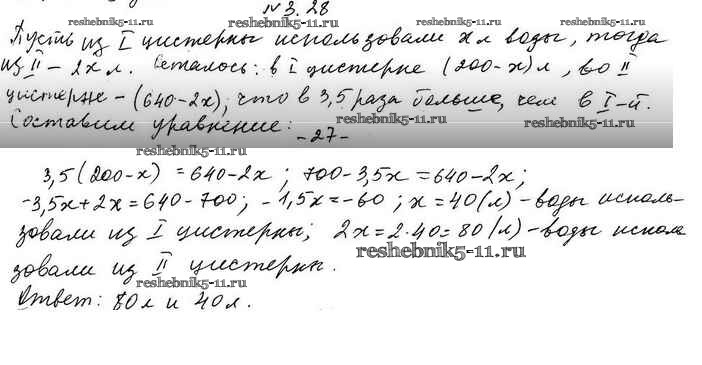 №3.28
reshebnik5-11.ru reshebnik5-11.ru
Пусть из I цистерны использовали x л воды, тогда
из II – 2x л. Осталось: в I цистерне (200-x) л, во II
цистерне – (640-2x), что в 3,5 раза больше, чем в I-й.
Составим уравнение:
reshebnik5-11.ru reshebnik5-11.ru
-27-
reshebnik5-11.ru
3,5(200-x) = 640-2x; 700-3,5x = 640-2x;
-3,5x+2x=640-700; -1,5x=-60; x=40(л)-воды исполь-
зовали из I цистерны; 2x=2·40=80(л)-воды исполь
reshebnik5-11.ru
зовали из II цистерны.
reshebnik5-11.ru
Ответ: 80л и 40л.